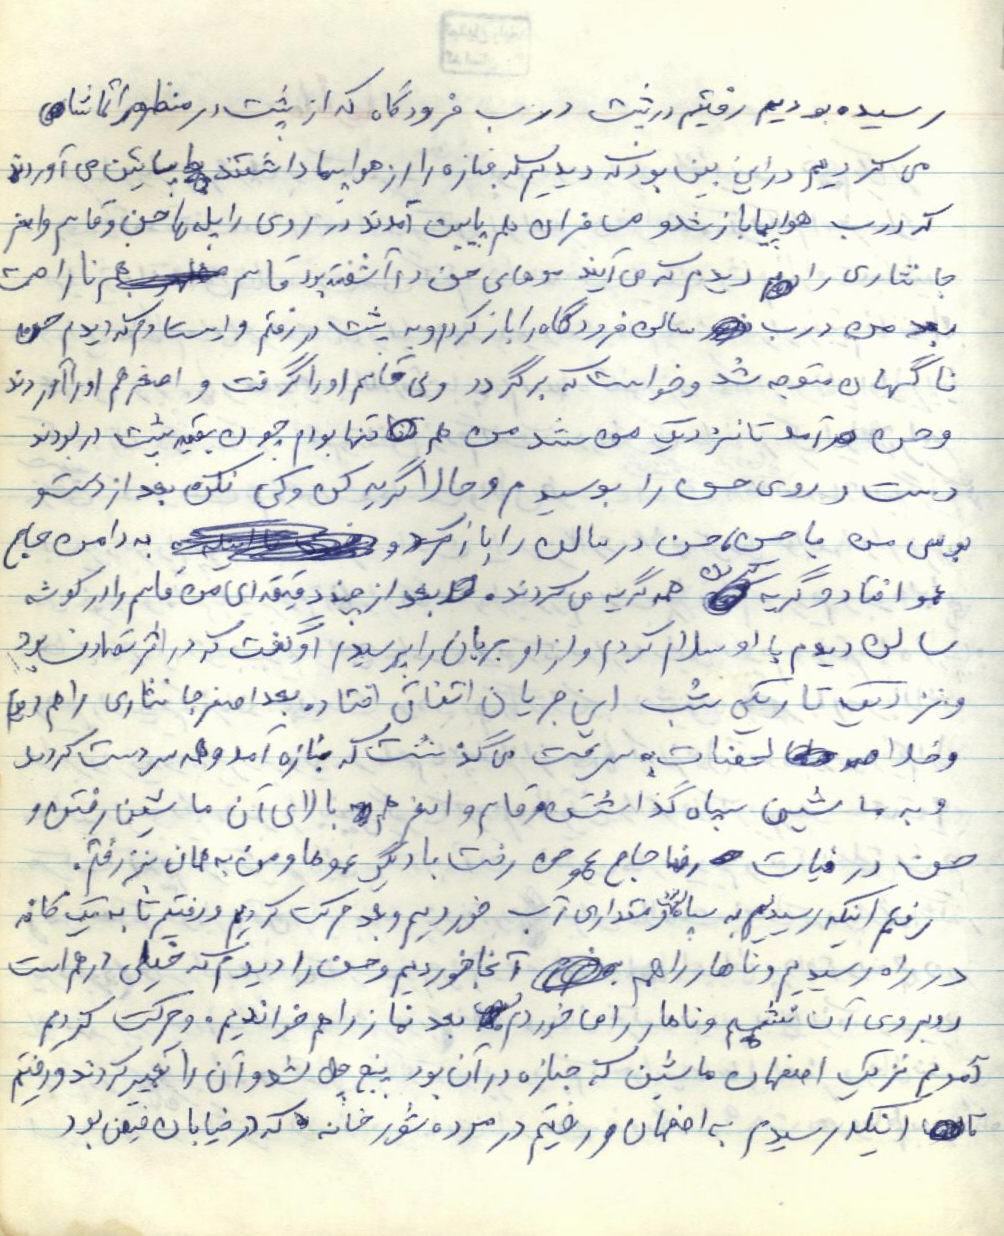 رسیده بودیم رفتیم در پشت درب فرودگاه که از پشت در منظره را تماشا
می کردیم در این بین بود که دیدیم که جنازه را از هواپیما داشتند پایین می آوردند
که درب هواپیما باز شد و مسافران هم پایین آمدند در روی راپله ها حسن و قاسم و اصغر
جانثاری را دیدم که می آیند موهای حسن در آشفته بود قاسم هم ناراحت
بعد من درب سالن فرودگاه را باز کردم و به پشت در رفتم و ایستادم که دیدم حسن
ناگهان متوجه شد و خواست که برگردد ولی قاسم او را گرفت و اصغر هم او را آوردند
و حسن آمد تا نزدیک من شد من هم تنها بودم چون بقیه پشت در بودند
دست و روی حسن را بوسیدم و حالا گریه کن و کی نکن بعد از دست و
بوسی من با حسن، حسن در سالن را باز کرد و به دامن حاج
عمو افتاد و گریه کردن همه گریه می کردند. بعد از چند دقیقه ای من قاسم را در گوشه
سالن دیدم با او سلام کردم و از او جریان را پرسیدم او گفت که در اثر تصادف بود
و نزدیک تاریکی شب این جریان اتفاق افتاده بعد اصغر جانثاری را هم دیدم
و خلاصه لحظات به سرعت می گذشت که جنازه آمد و همه سر دست کردند
و به ماشین سیاه گذاشتند و قاسم و اصغر هم بالای آن ماشین رفتن و
حسن در فیات رضا حاج عمو حسن رفت با دیگر عموها و من به همان نیز رفتم.
رفتیم اینکه رسیدیم به سپاه و مقداری آب خوردیم و بعد حرکت کردیم و رفتیم تا به یک کافه
در راه رسیدیم و ناهار را هم آنجا خوردیم و حسن را دیدم که خیلی درهم است
روبروی آن نشستیم و ناهار را ما خوردیم بعد نماز را هم خواندیم. و حرکت کردیم
آمدیم نزدیک اصفهان ماشین که جنازه در آن بود پنچر شد و آن را تعمیر کردند و رفتیم
تا اینکه رسیدیم به اصفهان و رفتیم در مرده شور خانه که در خیابان فیض بود